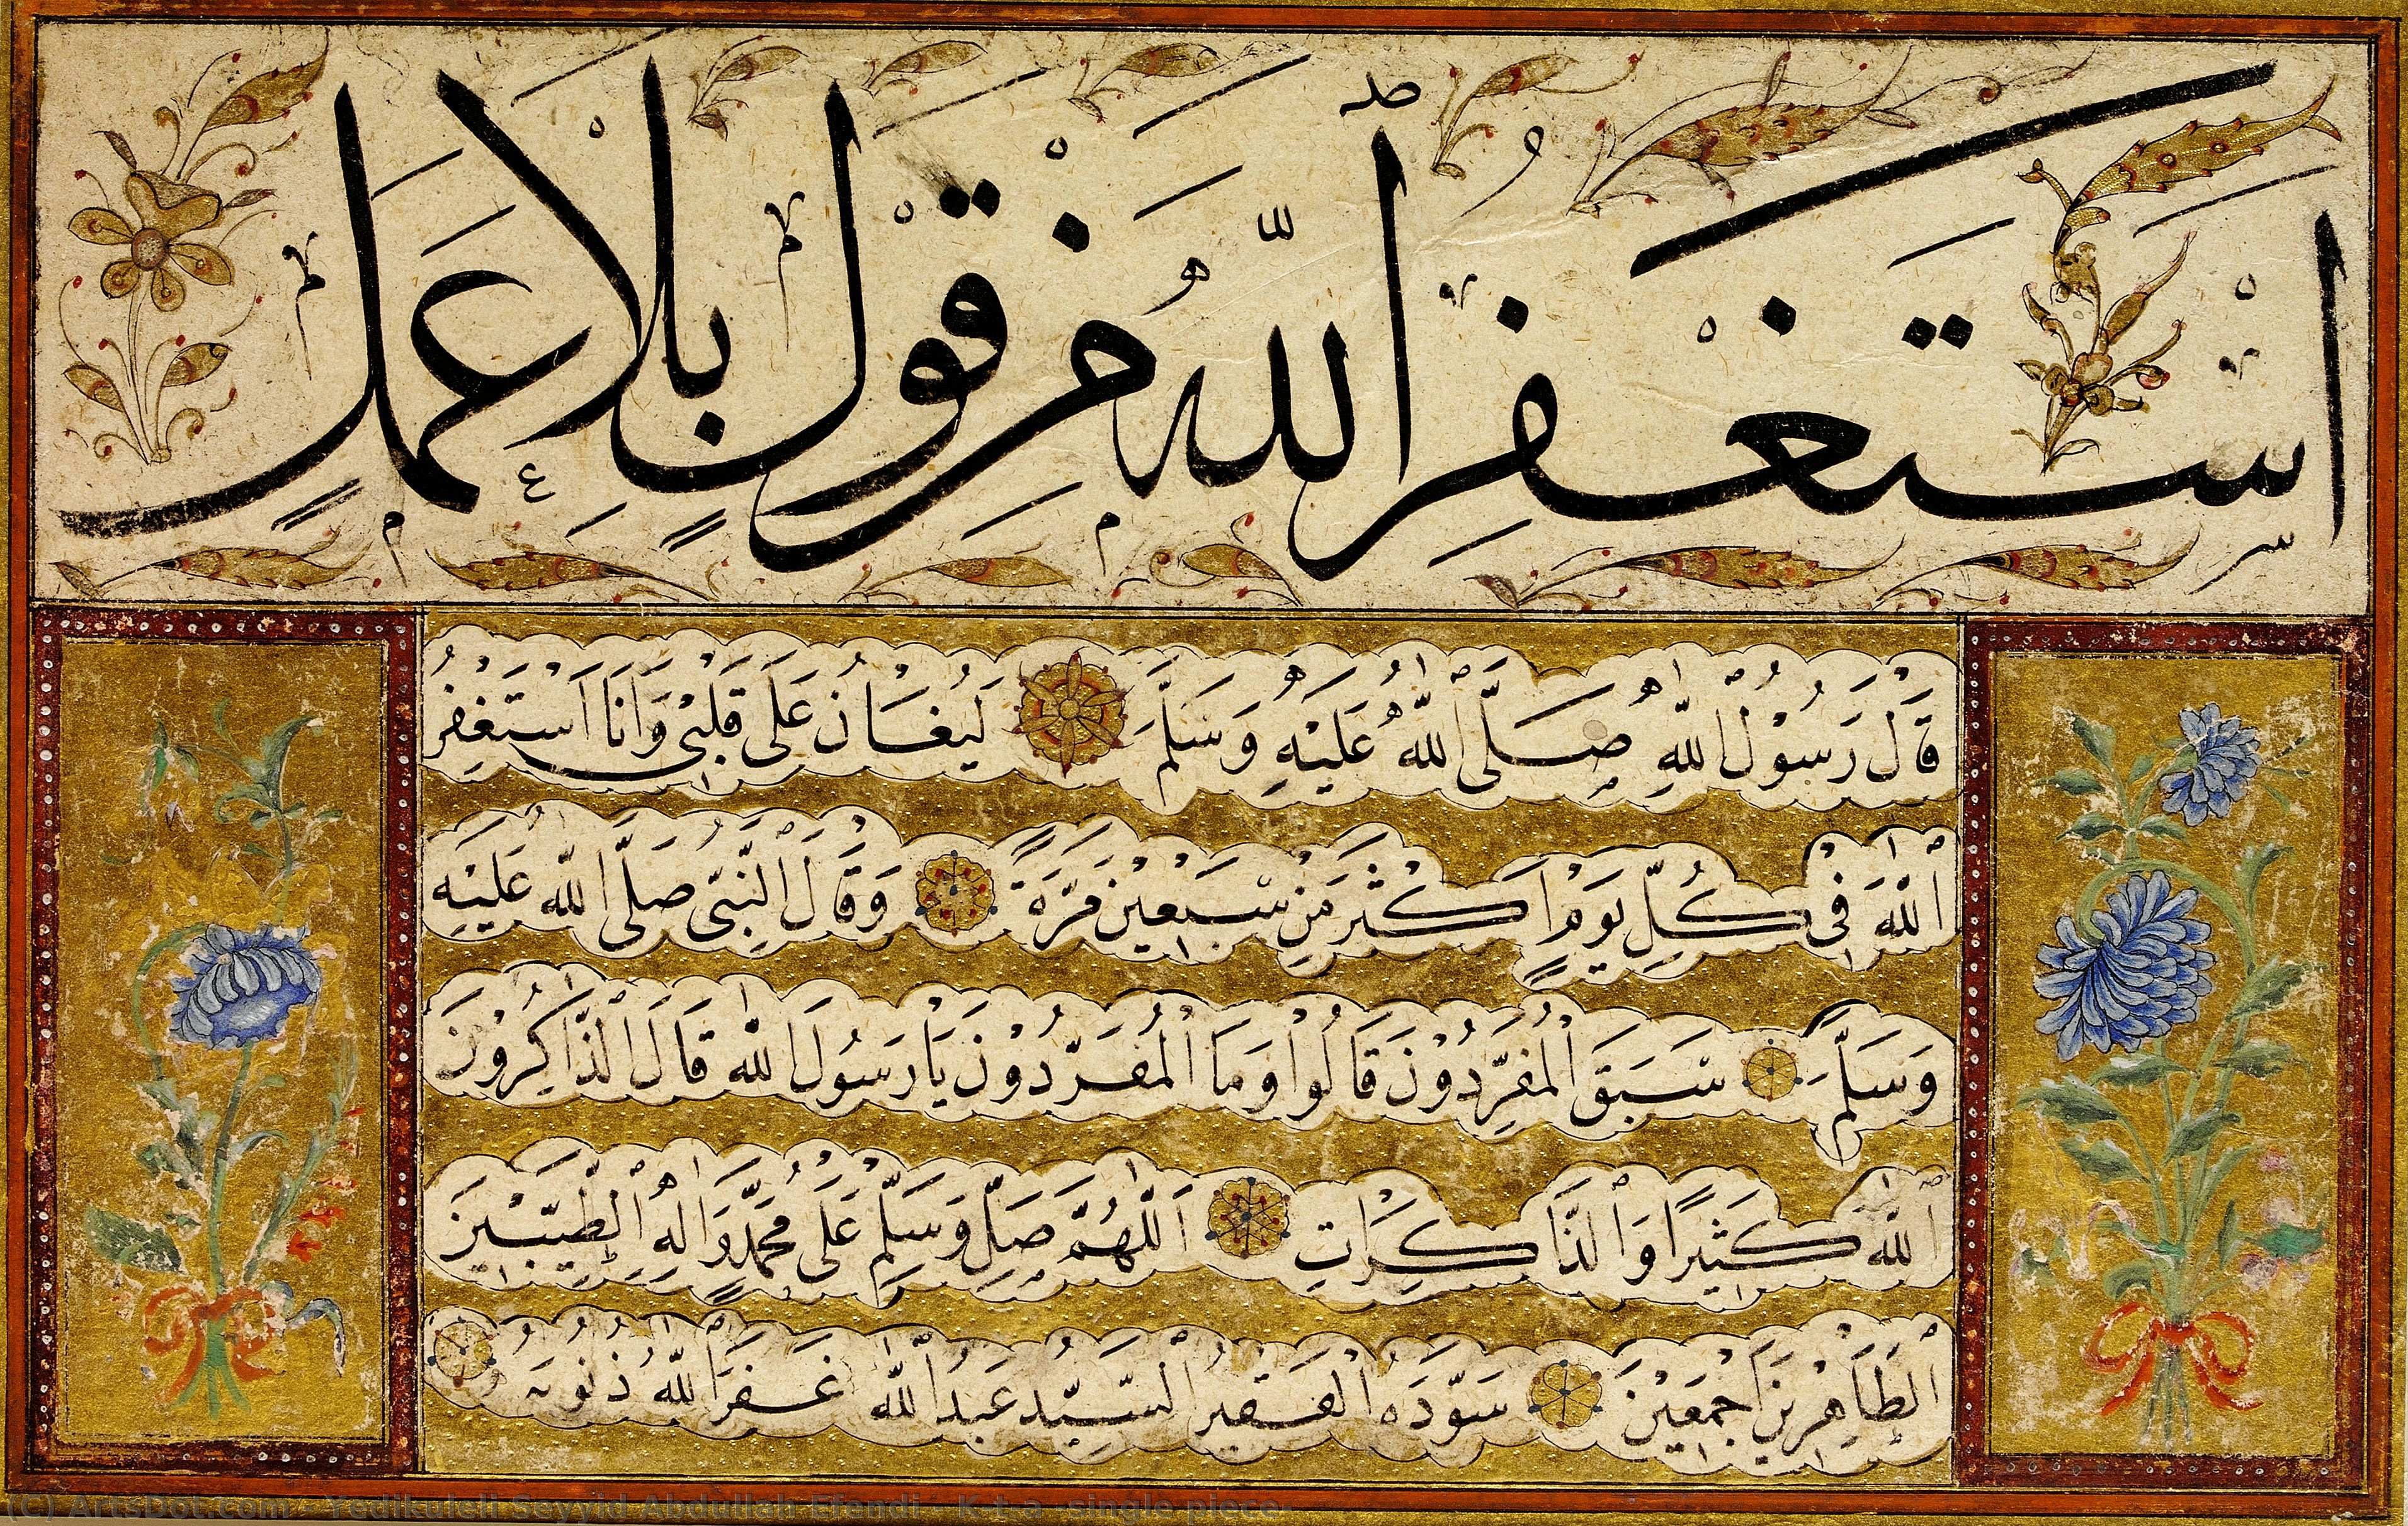 اَسْتَغْفِرُ اللّٰهَ مِنْ قَوْلٍ بِلَا عَمَلٍ
قَالَ رَسُوْلُ اللّٰهِ صَلَّى اللّٰهُ عَلَيْهِ وَسَلَّمَ لَيُغَانُ عَلٰى قَلْبِى وَاَنَا اَسْتَغْفِرُ
اللّٰهَ فِى كُلِّ يَوْمٍ اَكْثَرَ مِنْ سَبْعِيْنَ مَرَّةً وَقَالَ النَّبِىُّ صَلَّى اللّٰهُ عَلَيْهِ
وَسَلَّمَ سَبَقَ الْمُفَرِّدُوْنَ قَالُوْا وَمَا الْمُفَرِّدُوْنَ يَا رَسُوْلَ اللّٰهِ قَالَ الذَّاكِرُوْنَ
اللّٰهَ كَثِيْرًا وَالذَّاكِرَاتِ اَللّٰهُمَّ صَلِّ وَسَلِّمْ عَلٰى مُحَمَّدٍ وَاٰلِهِ الطَّيِّبِيْنَ
الطَّاهِرِيْنَ اَجْمَعِيْنَ سَوَّدَهُ الْفَقِيْرُ السَّيِّدُ عَبْدُ اللّٰهِ غَفَرَ اللّٰهُ ذُنُوْبَهُ
(C) ArtsDot.com - Yedikuleli Seyyid Abdullah Efendi - K-t-a -single piece-